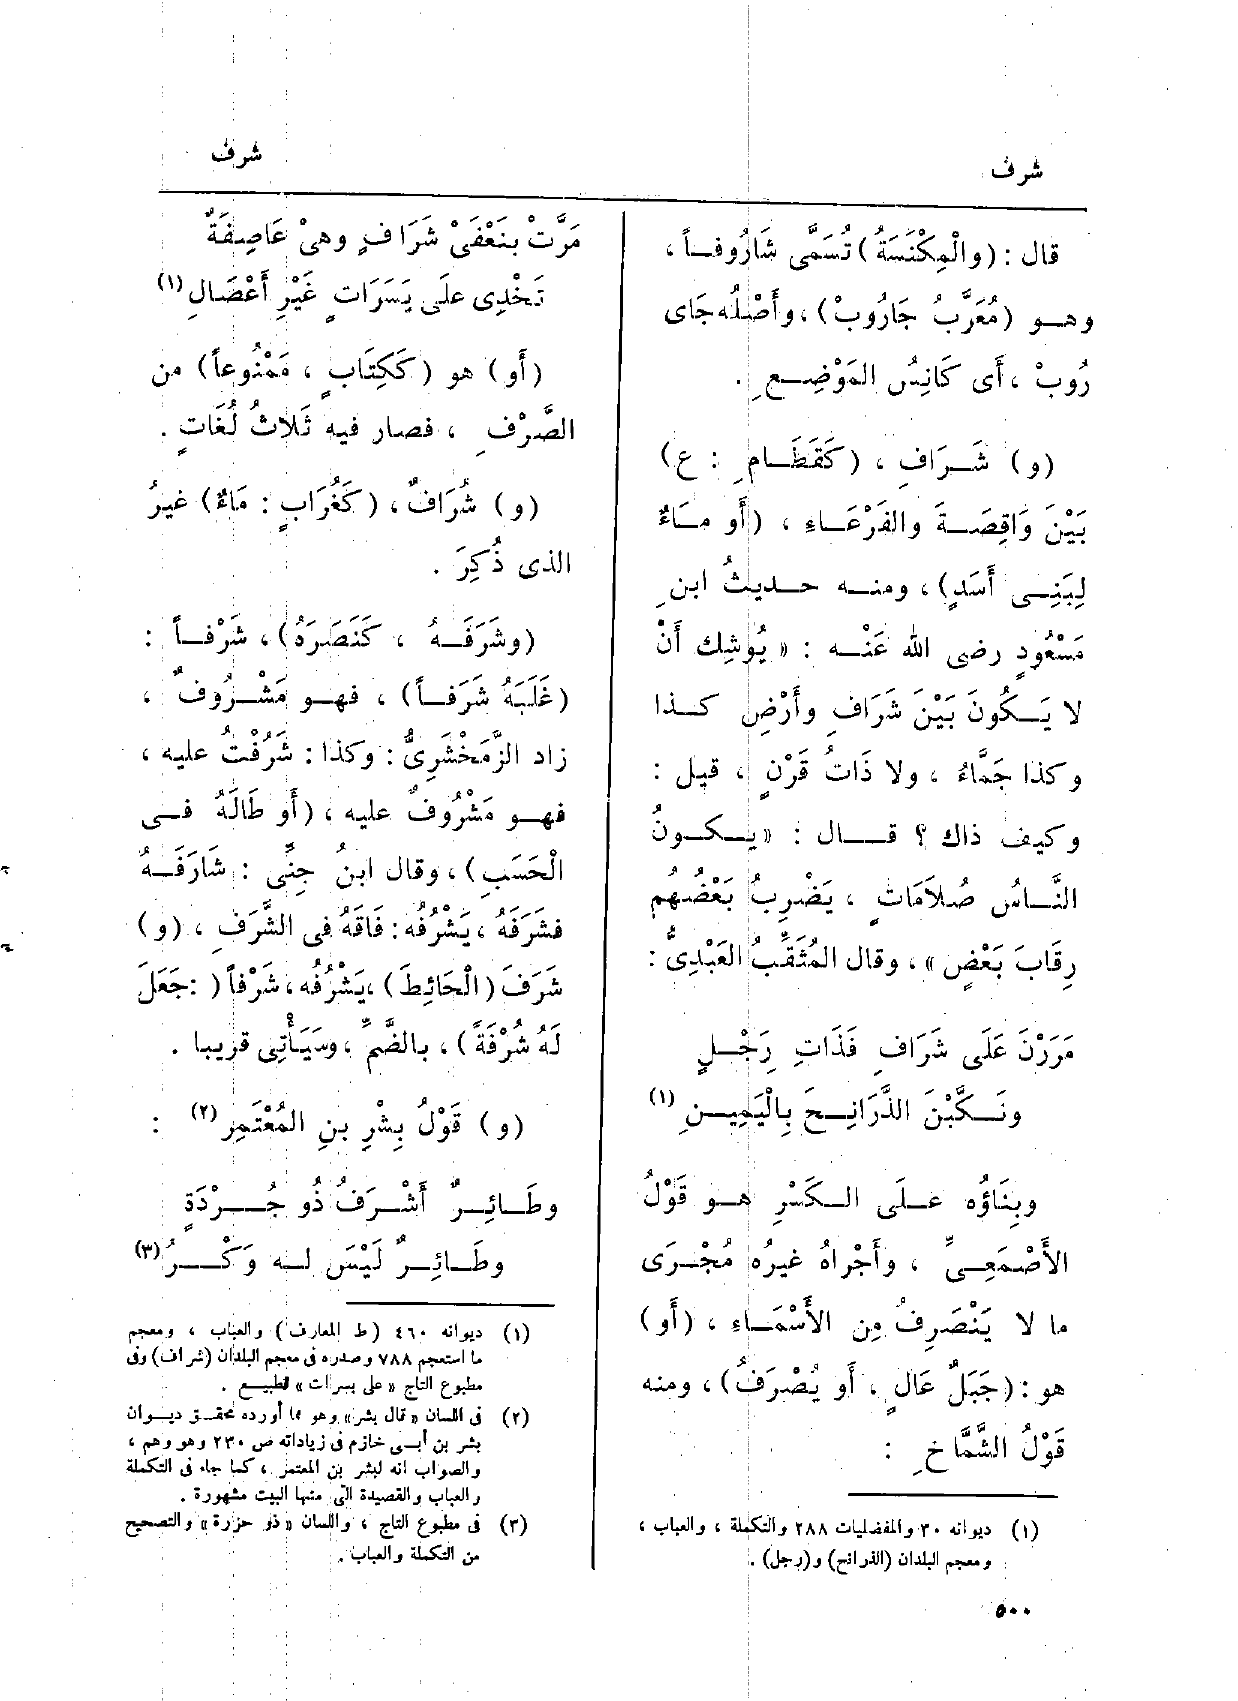 شرف
قال : (والْمِكْنَسَةُ) تُسَمَّى شَارُوفاً ،
وهو (مُعَرَّبُ جَارُوبْ) ، وأَصْلُه جَاى
رُوبْ ، أَى كَانِسُ المَوْضِعِ .
(و) شَرَافِ ، (كَقَطَامِ : ع)
بَيْنَ وَاقِصَةَ والفَرْعَاءِ ، (أَو مَاءٌ
لِبَنِى أَسَدٍ) ، ومنه حديثُ ابنِ
مَسْعُودٍ رضى الله عَنْه : « يُوشِك أَنْ
لا يَكُونَ بَيْنَ شَرَافِ وأَرْضِ كذا
وكذا جَمَّاءُ ، ولا ذَاتُ قَرْنٍ ، قيل :
وكيف ذاك ؟ قال : « يكونُ
النَّاسُ صُلاَمَاتٍ ، يَضْرِبُ بَعْضُهم
رِقَابَ بَعْضٍ » ، وقال المُثَقِّبُ العَبْدِىُّ :
مَرَرْنَ عَلَى شَرَافِ فَذَاتِ رَجْلٍ
ونَكَّبْنَ الذَّرَانِحَ بِالْيَمِينِ (١)
وبِنَاؤُه علَى الكَسْرِ هو قَوْلُ
الأَصْمَعِىِّ ، وأَجْراهُ غيرُه مُجْرَى
ما لا يَنْصَرِفُ مِن الأَسْمَاءِ ، (أَو)
هو : (جَبَلٌ عَالٍ ، أَو يُصْرَفُ) ، ومنه
قَوْلُ الشَّمَّاخِ :
(١) ديوانه ٣٠ والمفضليات ٢٨٨ والتكملة ، والعباب ،
ومعجم البلدان (الذرانح) و(رجل) .
شرف
مَرَّتْ بنَعْفَىْ شَرَافٍ وهىْ عَاصِفَةٌ
تَخْدِى علَى يَسَرَاتٍ غَيْرِ أَعْصَالِ (١)
(أَو) هو (كَكِتَابٍ ، مَمْنُوعاً) من
الصَّرْفِ ، فصار فيه ثَلاثُ لُغَاتٍ .
(و) شُرَافٌ ، (كَغُرَابٍ : مَاءٌ) غيرُ
الذى ذُكِرَ .
(وشَرَفَهُ ، كَنَصَرَهُ) ، شَرْفاً :
(غَلَبَهُ شَرَفاً) ، فهو مَشْرُوفٌ ،
زاد الزَّمَخْشَرِىُّ : وكذا : شَرُفْتُ عليه ،
فهو مَشْرُوفٌ عليه ، (أَو طَالَهُ فى
الْحَسَبِ) ، وقال ابنُ جِنِّى : شَارَفَهُ
فشَرَفَهُ ، يَشْرُفُه : فَاقَهُ فى الشَّرَفِ ، (و)
شَرَفَ (الْحَائِطَ) ، يَشْرُفُه ، شَرْفاً ( : جَعَلَ
لَهُ شُرْفَةً) ، بالضَّمِّ ، وسَيَأْتِى قريبا .
(و) قَوْلُ بِشْرِ بنِ المُعْتَمِرِ (٢) :
وطَائِرٌ أَشْرَفُ ذُو جُرْدَةٍ
وطَائِرٌ لَيْسَ له وَكْرُ (٣)
(١) ديوانه ٤٦٠ (ط المعارف) والعباب ، ومعجم
ما استعجم ٧٨٨ وصدره فى معجم البلدان (شراف) وفى
مطبوع التاج « على بسرات » تطبيع .
(٢) فى اللسان « قال بشر » وهو مما أورده محقق ديوان
بشر بن أبى خازم فى زياداته ص ٢٣٠ وهو وهم ،
والصواب انه لبشر بن المعتمر ، كما جاء فى التكملة
والعباب والقصيدة التى منها البيت مشهورة .
(٣) فى مطبوع التاج ، واللسان « ذو حزرة » والتصحيح
من التكملة والعباب .
٥٠٠